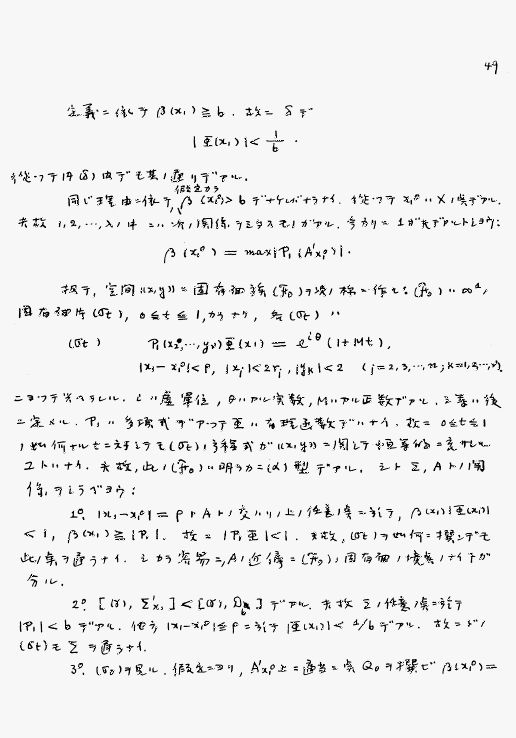 49
定義ニ依テ β(x₁) ≧ b. 故ニ δ デ
|Φ(x₁)| < 1/b.
従ツテ (δ) 内デモ其ノ通リデアル.
仮定カラ
同ジ理由ニ依テ, β(x₁⁰) > b デナケレバナラナイ. 従ツテ x₁⁰ ハ X ノ点デアル.
夫故 1, 2, …, λ ノ中ニハ次ノ関係ヲミタスモノガアル. 今カリニ 1 ガ夫デアルトシヨウ:
β(x₁⁰) = max |P₁(A'x₁⁰)|.
扨テ, 空間 ((x, y)) ニ固有面族 (F₀) ヲ次ノ様ニ作ル: (F₀) ハ ∞¹ ノ
固有面片 (σt), 0 ≦ t ≦ 1, カラナリ, 各 (σt) ハ
(σt) P₁(x₂⁰, …, yν) Φ(x₁) = e^{iθ}(1+Mt),
|x₁−x₁⁰| < ρ, |xⱼ| < 2rⱼ, |yₖ| < 2 (j=2, 3, …, n; k=1, 2, …, ν),
ニヨツテ与ヘラレル. i ハ虚単位, θ ハアル実数, M ハアル正数デアル.
ニ定メル. P₁ ハ多項式デアツテ Φ ハ有理函数デハナイ. 故ニ 0≦t≦1
ノ如何ナル t ニ対シテモ (σt) ノ方程式ガ ((x, y)) ニ関シテ恒等的ニ充サレル
コトハナイ. 夫故, 此ノ (F₀) ハ明ラカニ (α) 型デアル. Σ, A トノ関
係ヲシラベヨウ:
1⁰. |x₁−x₁⁰| = ρ ト A トノ交ハリノ上ノ任意ノ点ニ於テ, β(x₁)|Φ(x₁)|
< 1, β(x₁) ≧ |P₁|. 故ニ |P₁Φ| < 1. 夫故, (σt) ハ如何ニ θ ヲ撰ンデモ
此ノ点ヲ通ラナイ. シカラ容易ニ, A ノ近傍ニ (F₀) ノ固有面ノ境界ノナイ事ガ
分ル.
2⁰. [(γ), Σ'x₁] < [(γ), D_b] デアル. 夫故 Σ ノ任意ノ点ニ於テ
|P₁| < b デアル. 他方 |x₁−x₁⁰| ≦ ρ ニ於テ |Φ(x₁)| < 1/b デアル. 故ニ
(σt) モ Σ ヲ通ラナイ.
3⁰. (σ₀) ヲ見ル. 仮定ニヨリ, A'x₁⁰ 上ニ適当ニ点 Q₀ ヲ撰ンデ β(x₁⁰) =